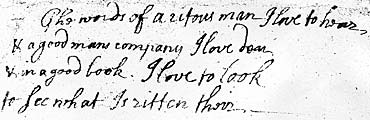 The words of a ritous man I love to hear,
& a good mans company I love dear
& in a good book. I love to look
to see what Is ritten their.